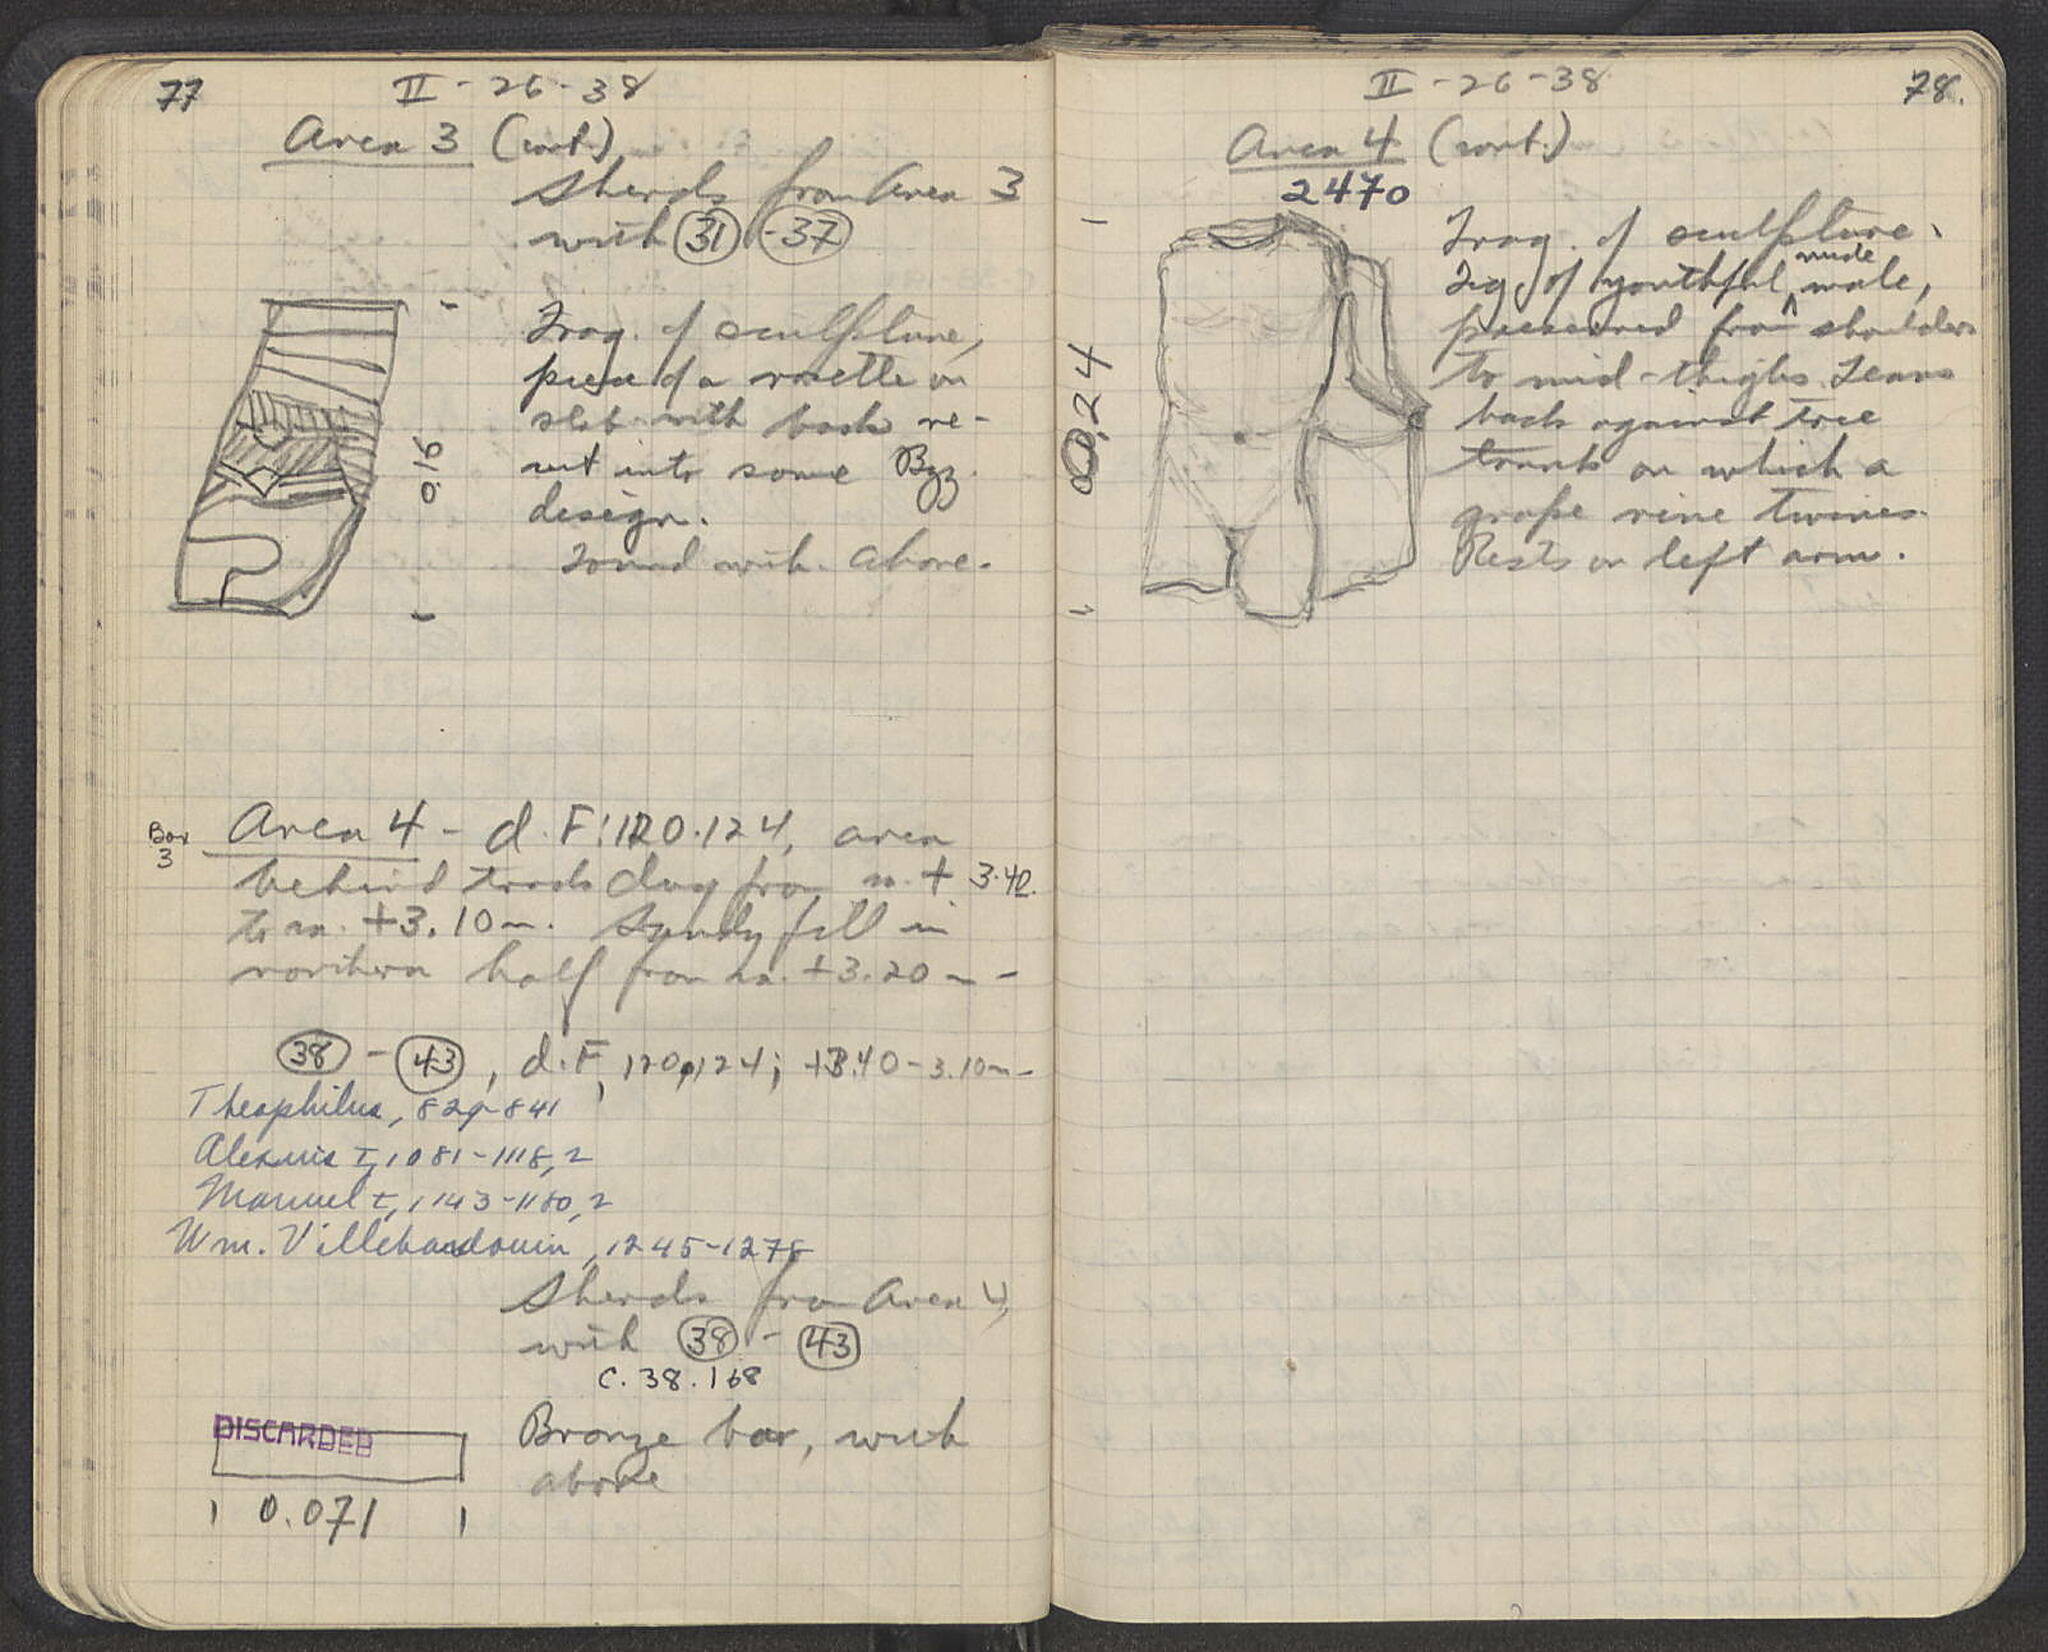 77
II - 26 - 38
Area 3 (cont.)
Sherds from Area 3
with 31 - 37
Frag. of sculpture,
piece of a rosette on
slab with back re-
cut into some Byz.
design.
Found with above.
0.16
Box
3
Area 4 - d. F: 120.124, area
behind track dug from m. + 3.40
to m. +3.10 m. Sandy fill in
northern half from m. +3.20 m -
38 - 43, d.F, 120,124; +3.40 - 3.10m -
Theophilus, 829-841
Alexius I, 1081-1118, 2
Manuel I, 1143-1180, 2
Wm. Villehardouin, 1245-1278
Sherds from Area 4,
with 38 - 43
C. 38. 168
DISCARDED
Bronze bar, with
above
0.071
II - 26 - 38
78.
Area 4 (cont.)
2470
0.24
Frag. of sculpture.
Fig. of youthful nude male,
preserved from shoulders
to mid-thighs. Leans
back against tree
trunk on which a
grape vine twines.
Rests on left arm.